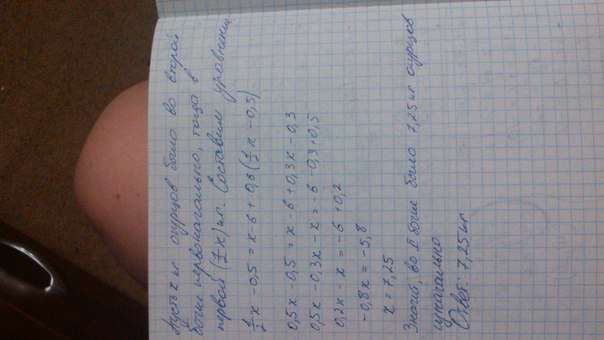 Пусть x кг огурцов было во второй
бочке первоначально, тогда в
первой (½x) кг. Составим уравнение
½x - 0,5 = x - 6 + 0,6(½x - 0,5)
0,5x - 0,5 = x - 6 + 0,3x - 0,3
0,5x - 0,3x - x = -6 - 0,3 + 0,5
0,2x - x = -6 + 0,2
-0,8x = -5,8
x = 7,25
Значит, во II бочке было 7,25 кг огурцов
изначально
Ответ: 7,25 кг